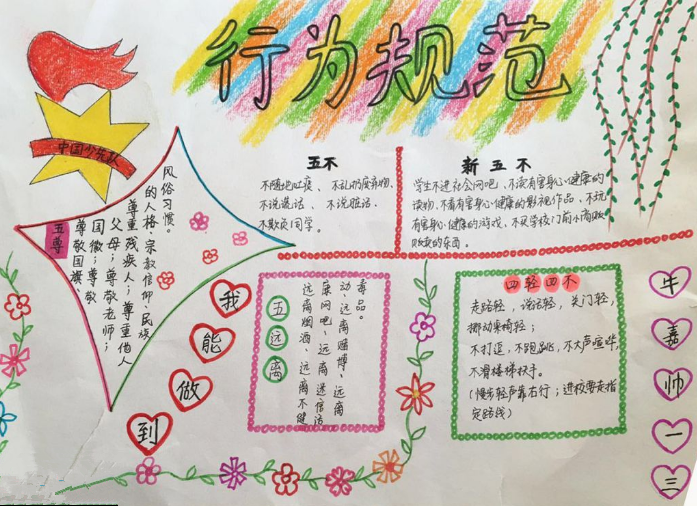 行为规范
中国少先队
五尊
尊敬国旗、
国徽；尊敬
父母；尊敬老师；
尊重残疾人；尊重他人
的人格、宗教信仰、民族
风俗习惯。
五不
不随地吐痰、不乱扔废弃物、
不说谎话、不说脏话、
不欺负同学。
新五不
学生不进社会网吧、不读有害身心健康的
读物、不看有害身心健康的影视作品、不玩
有害身心健康的游戏、不买学校门前小商贩
贩卖的东西。
我
能
做
到
五远离
远离烟酒、远离不健
康网吧、远离迷信活
动、远离赌博、远离
毒品。
四轻四不
走路轻，说话轻，关门轻，
挪动桌椅轻；
不打逗，不跑跳，不大声喧哗，
不滑楼梯扶手。
（慢步轻声靠右行；进校要走指
定路线）
牛
嘉
帅
一
三